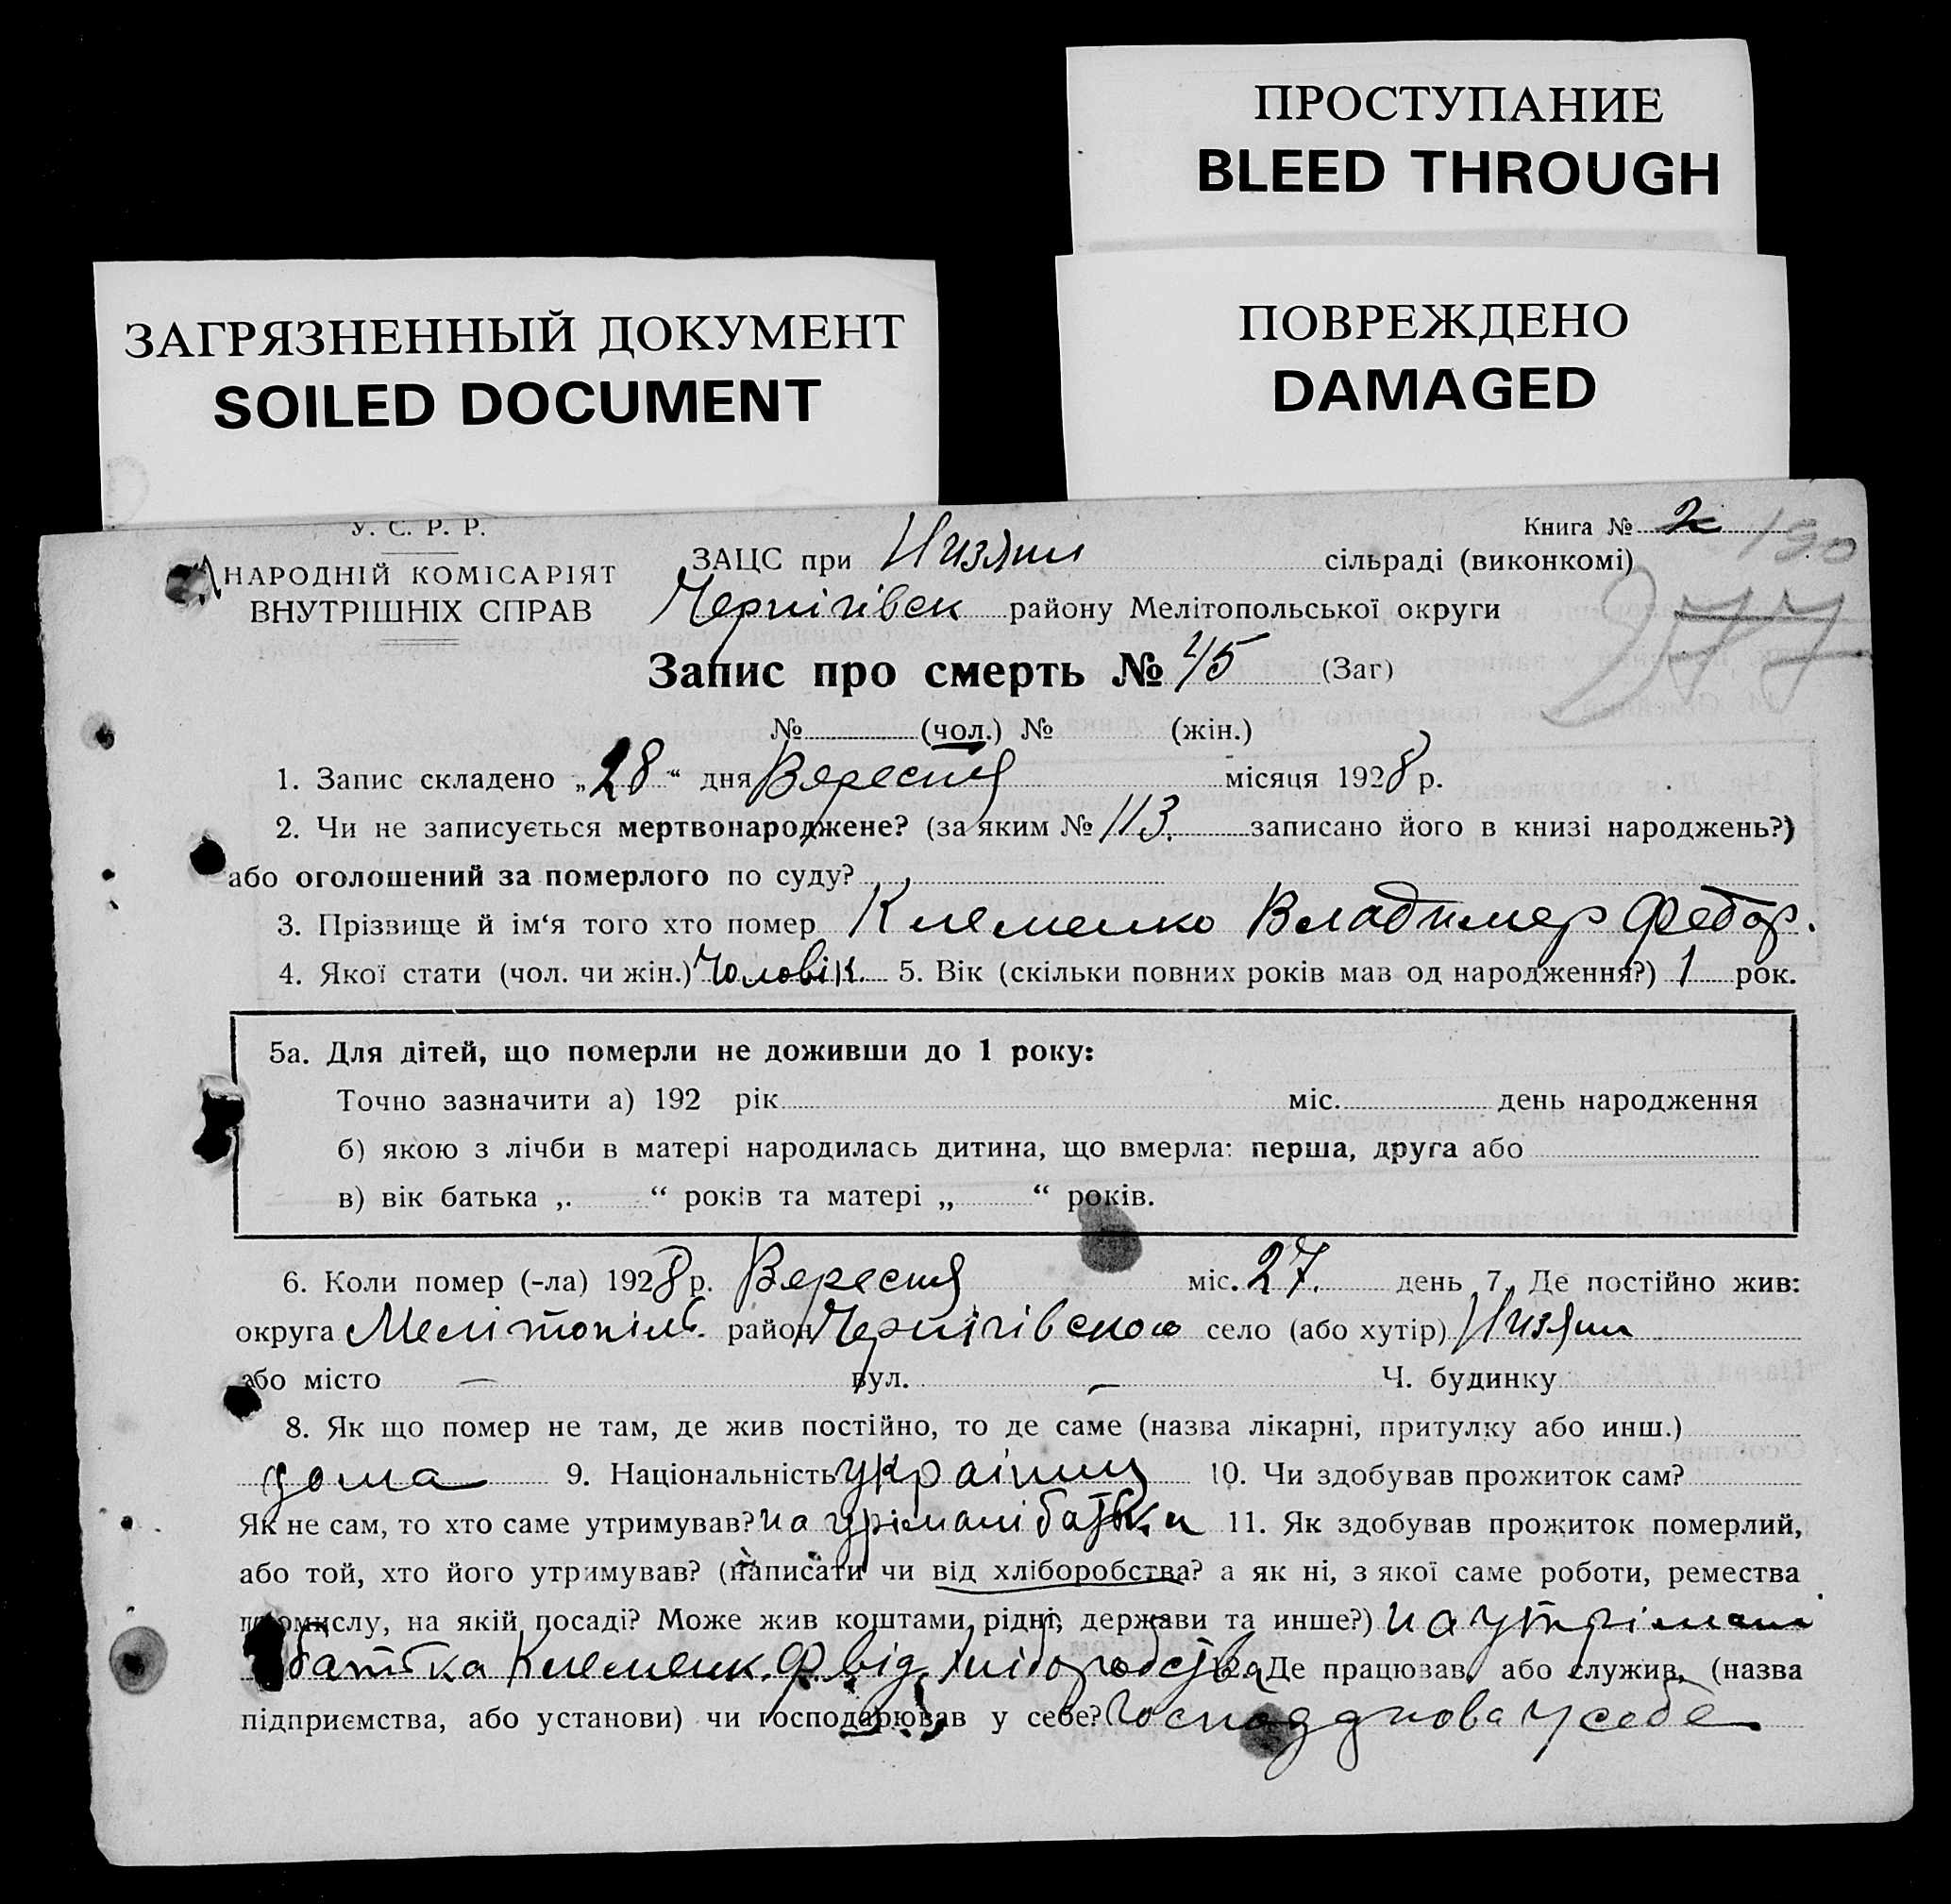 ПРОСТУПАНИЕ
BLEED THROUGH
ЗАГРЯЗНЕННЫЙ ДОКУМЕНТ
SOILED DOCUMENT
ПОВРЕЖДЕНО
DAMAGED
У. С. Р. Р.
НАРОДНІЙ КОМІСАРІЯТ
ВНУТРІШНІХ СПРАВ
Книга № 2
190
277
ЗАЦС при Низяни сільраді (виконкомі)
Чернігівск району Мелітопольської округи
Запис про смерть № 45 (Заг)
№ (чол.) № (жін.)
1. Запис складено „28“ дня Вересня місяця 1928 р.
2. Чи не записується мертвонароджене? (за яким № 113. записано його в книзі народжень?)
або оголошений за померлого по суду?
3. Прізвище й ім‘я того хто помер Клеменко Владимер Федор.
4. Якої стати (чол. чи жін.) Чоловік. 5. Вік (скільки повних років мав од народження?) 1 рок.
5а. Для дітей, що померли не доживши до 1 року:
Точно зазначити а) 192 рік міс. день народження
б) якою з лічби в матері народилась дитина, що вмерла: перша, друга або
в) вік батька „ “ років та матері „ “ років.
6. Коли помер (-ла) 1928 р. Вересня міс. 27. день 7. Де постійно жив:
округа Мелітопіль. район Чернігівскою село (або хутір) Низяни
або місто — вул. — Ч. будинку
8. Як що помер не там, де жив постійно, то де саме (назва лікарні, притулку або инш.)
дома 9. Національність украінец 10. Чи здобував прожиток сам?
Як не сам, то хто саме утримував? на урімані батька 11. Як здобував прожиток померлий,
або той, хто його утримував? (написати чи від хліборобства? а як ні, з якої саме роботи, ремества
промислу, на якій посаді? Може жив коштами рідні, держави та инше?) на утрімані
батька Клеменк. Ф. від хліборобства 12. Де працював, або служив, (назва
підприємства, або установи) чи господарював у себе? у себе